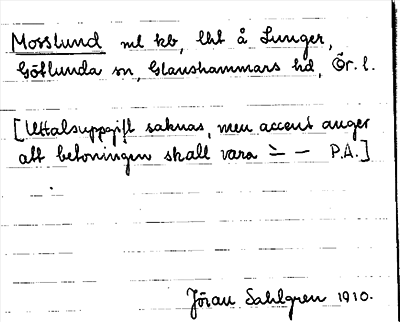 Mosslund ml kb, lht å Lunger,
Götlunda sn, Glanshammars hd, Ör. l.
[Uttalsuppgift saknas, men accent anger
att betoningen skall vara – – P.A.]
Jöran Sahlgren 1910.